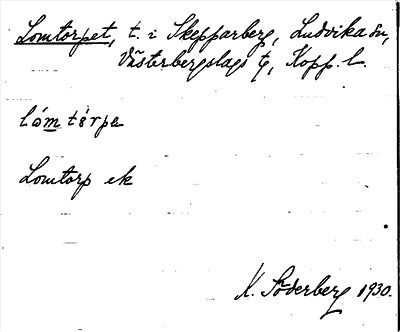 Lomtorpet, t. i Skepparberg, Ludvika sn,
Västerbergslags tg, Kopp. l.
lóm tòrpa
Lomtorp ek
K. Söderberg 1930.